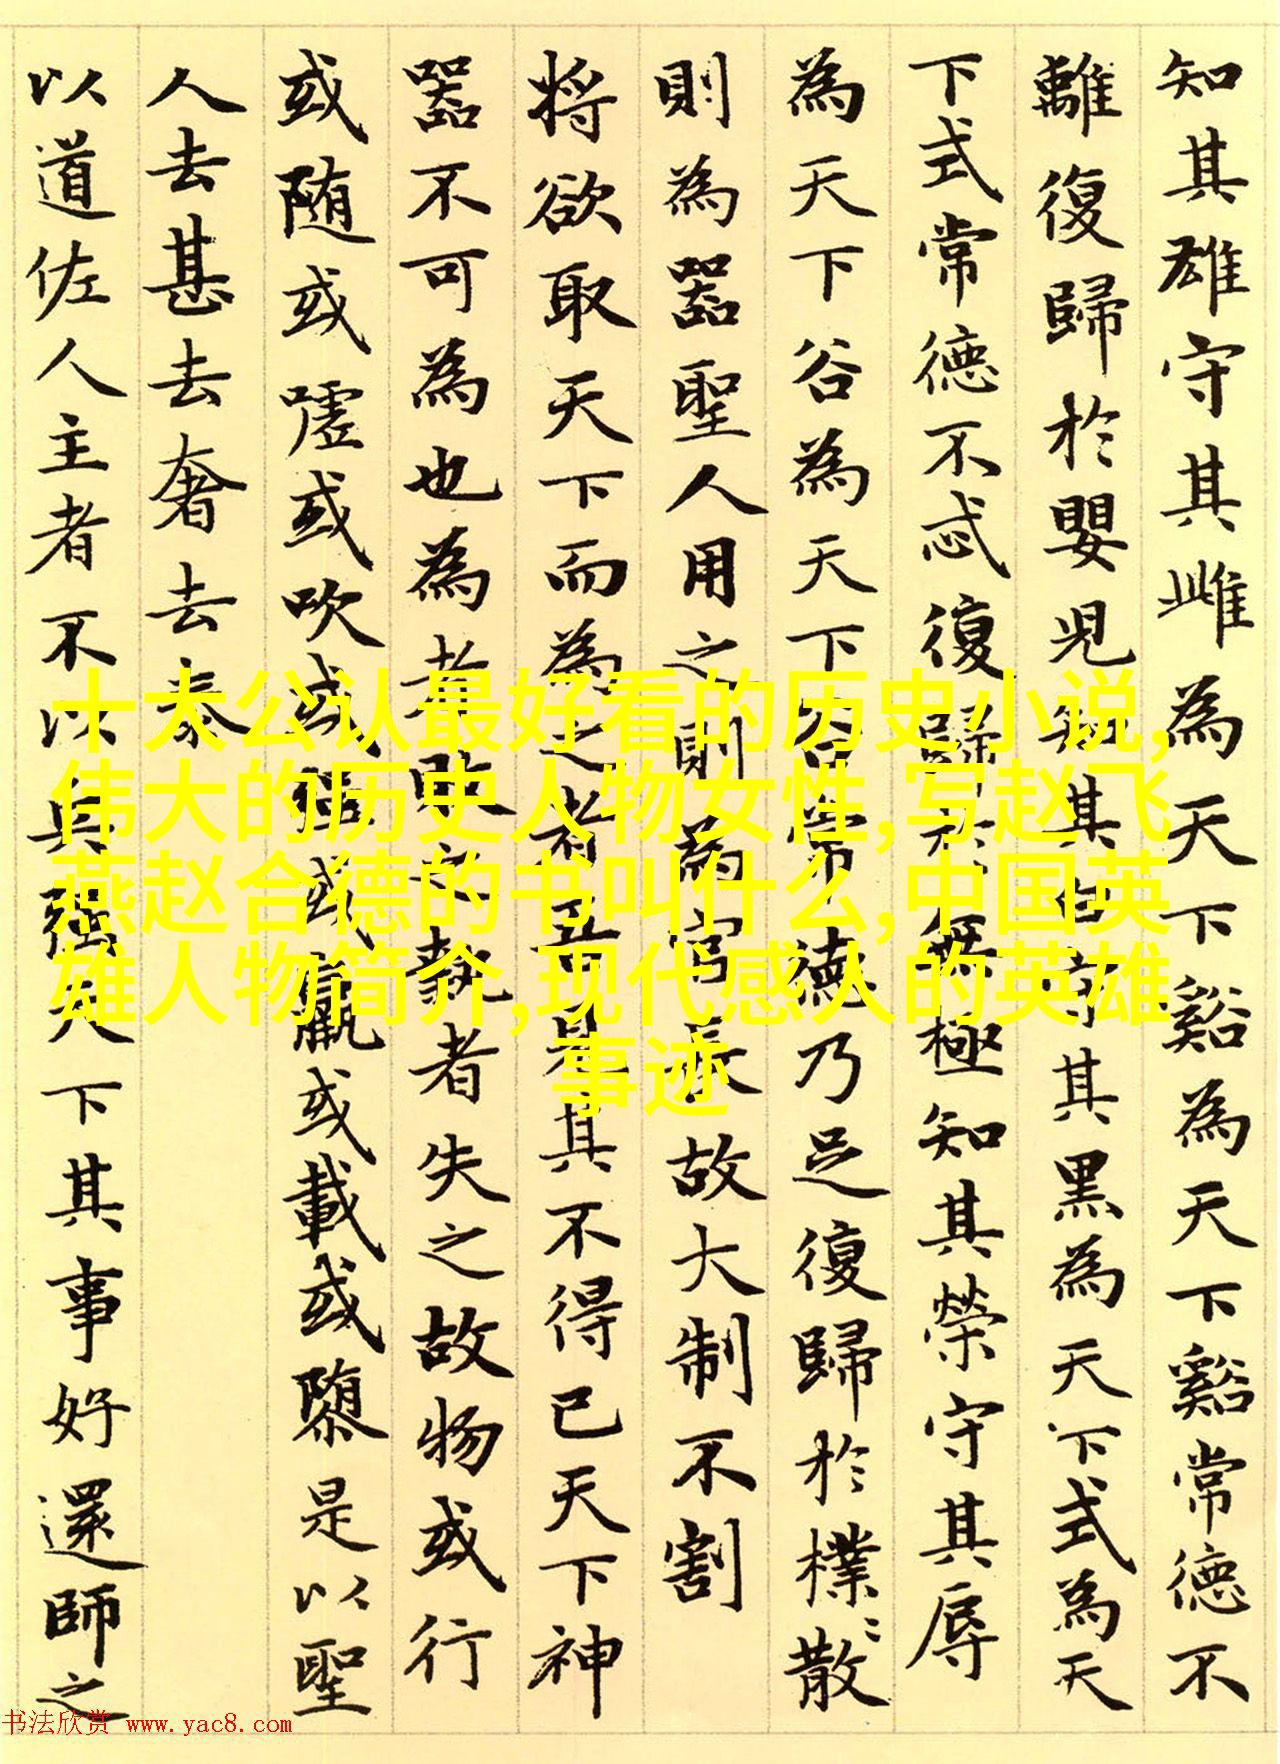 知其雄守其雌為天下谿為天下谿常德不
離復歸於嬰児知其白守其黑為天下式為天
下式常德不忒復歸於無極知其榮守其辱
為天下谷為天下谷常德乃足復歸於樸〻散
則為器聖人用之則為官長故大制不割
将欲取天下而為之者吾見其不得已天下神
器不可為也為者敗之執者失之故物或行
或随或嘘或吹或强或羸或載或隳是以聖
人去甚去奢去泰
以道佐人主者不以兵强天下其事好還師之
十大公认最好看的历史小说,
伟大的历史人物女性,写赵飞
燕赵合德的书叫什么,中国英
雄人物简介,现代感人的英雄
事迹
书法欣赏 www.yac8.com